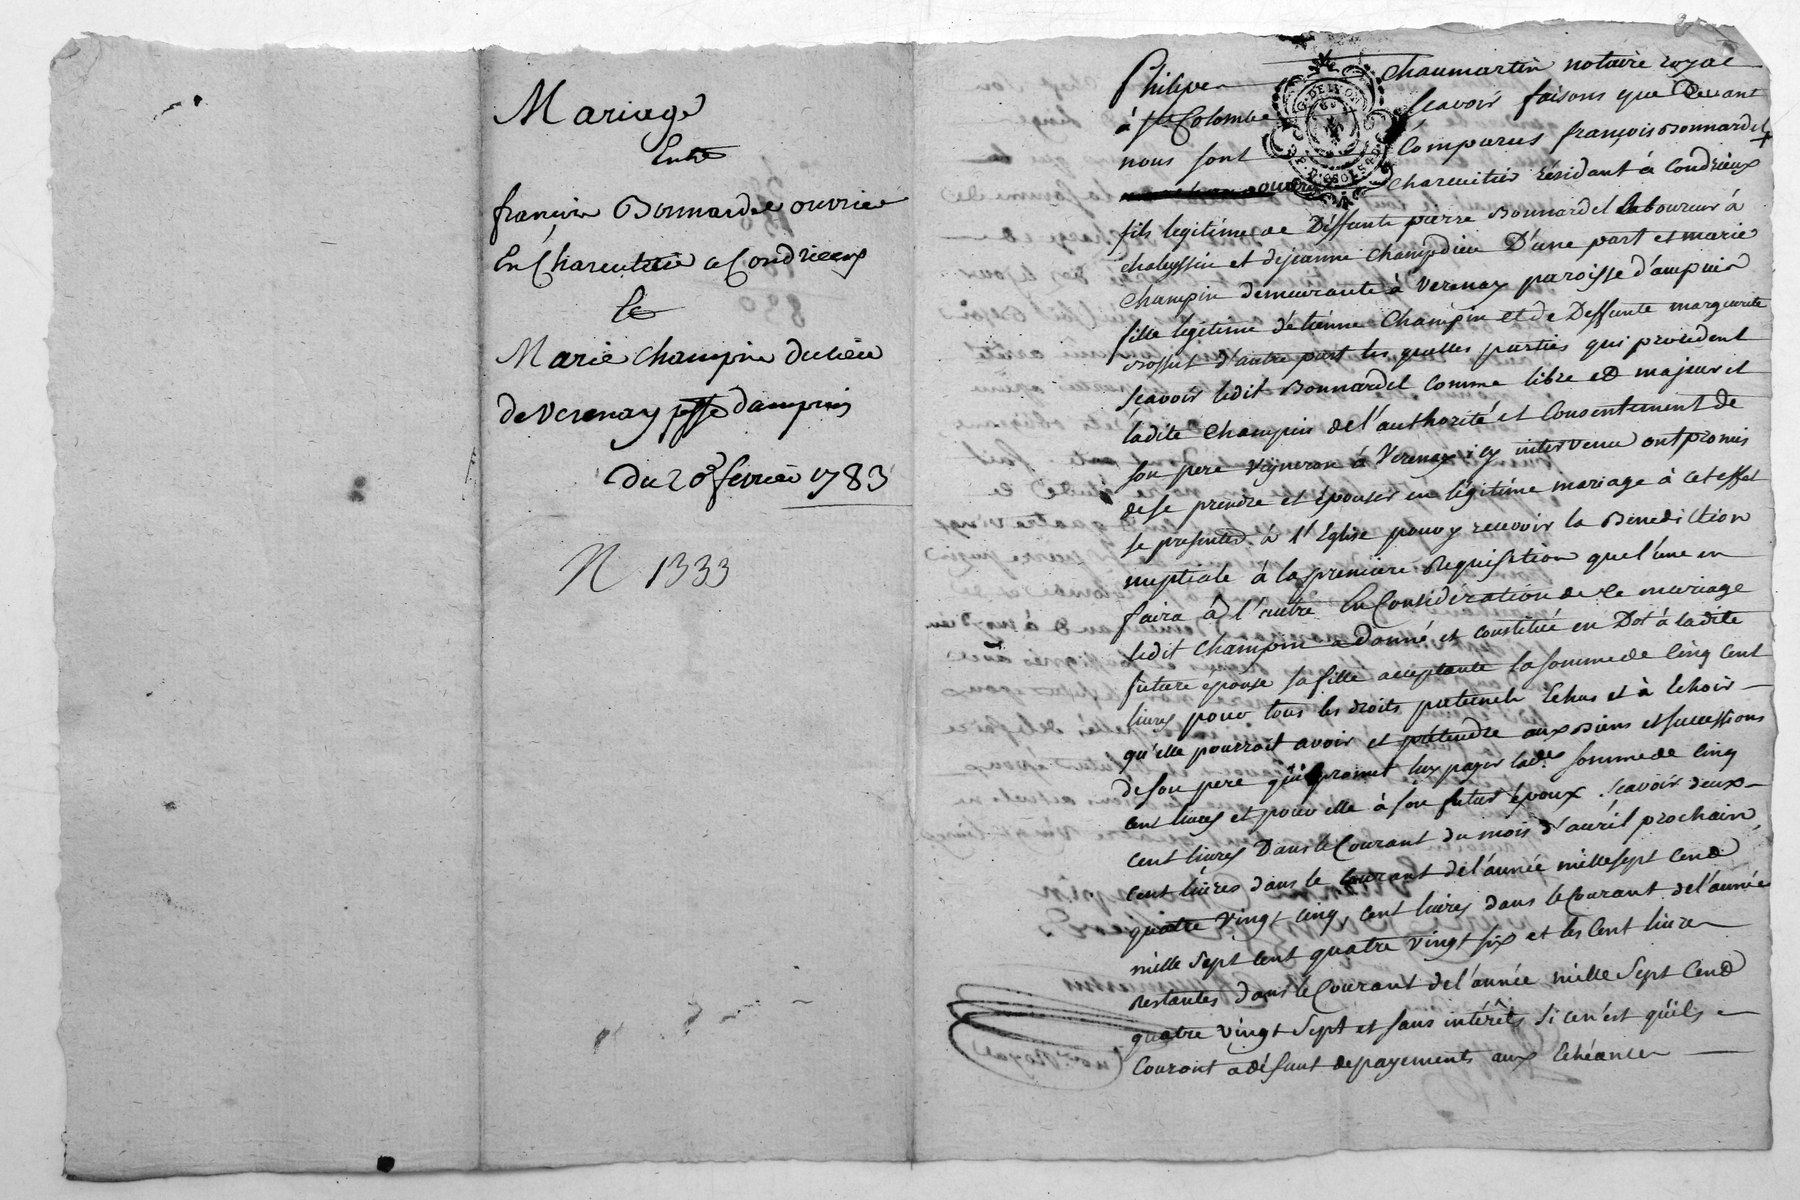 Mariage
Entre
françois Bonnardel ouvrier
En Charcuterie a Condrieux
Et
Marie Champin du lieu
de Verenay psse dampuis
du 20e fevrier 1783
N 1333
Philippe Chaumartin notaire royal
à ste Colombe scavoir faisons que Devant
nous sont Comparus françois Bonnardel
charcuitier résidant à Condrieux
fils legitime de Deffunte pierre Bonnardel laboureur à
et djeanne Champdieu D'une part et marie
Champin demeurante à Verenay paroisse d'ampuis
fille legitime d'etienne Champin et de Deffunte marguerite
d'autre part les quelles parties qui procedent
scavoir ledit Bonnardel comme libre et majeur et
ladite Champin de l'authorité et Consentement de
son pere vigneron à Verenay icy intervenu ont promis
de se prendre et épouser en légitime mariage à cet effet
se presenter à l'Eglise pour y recevoir la Benediction
nuptiale à la premiere Requisition que l'une en
faira à l'autre En Considération de ce mariage
ledit Champin a donné et constitué en Dot à ladite
future épouse sa fille acceptante la somme de Cinq Cent
livres pour tous les droits paternels Echus et à Echoir
qu'elle pourroit avoir et prétendre aux Biens et successions
de son pere qui promet luy payer lade somme de Cinq
cent livres et pour elle à son futur époux scavoir deux
cent livres Dans le Courant du mois d'avril prochain,
cent livres dans le courant de l'année mille sept Cend
quatre vingt Cinq, cent livres dans le Courant de l'année
mille Sept Cent quatre vingt six et les Cent livres
restantes dans le Courant de l'année mille Sept Cend
quatre vingt Sept et sans intérêts si ce n'est qu'ils
Couront a défaut de payements aux Echéances
not. Royal